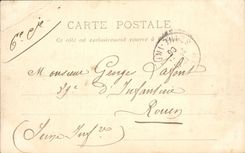 CARTE POSTALE
Ce côté est exclusivement réservé à
6e Cie
Monsieur Georges Lafont
d'Infanterie
Rouen
(Seine Infre)